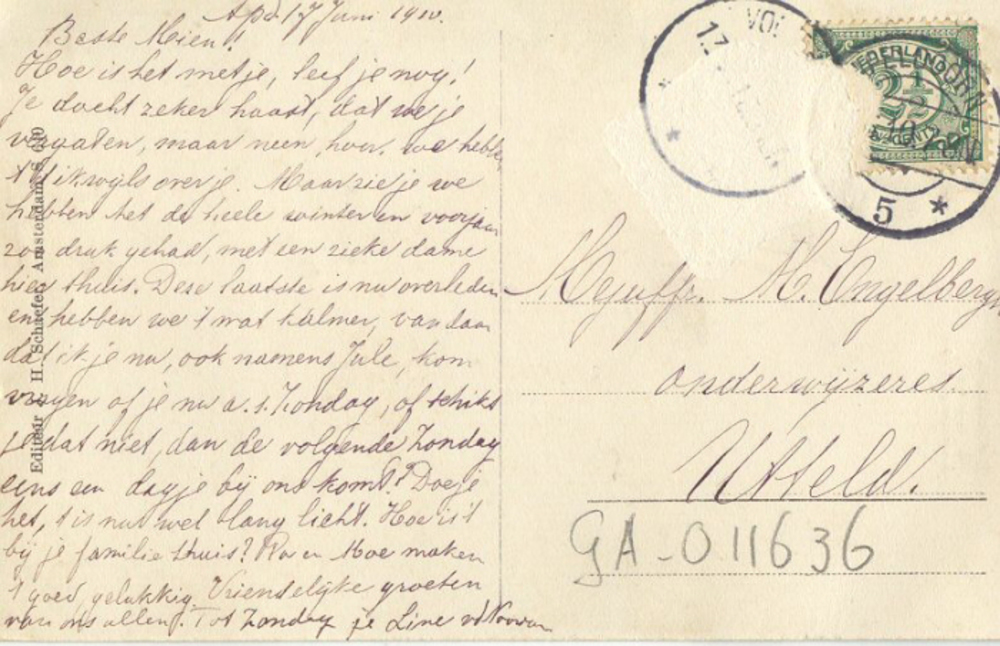 Apd. 17 Juni 1910.
Beste Mien!
Hoe is het met je, leef je nog!
Je dacht zeker haast, dat we je
vergaten, maar neen, hoor. we hebben
't dikwijls over je. Maar zie je we
hebben het de heele winter en voorjaar
zoo druk gehad, met een zieke dame
hier thuis. Deze laatste is nu overleden
en hebben we 't wat kalmer, vandaar
dat ik je nu, ook namens Jule, kom
vragen of je nu a.s. Zondag, of schikt
je dat niet, dan de volgende Zondag
eens een dagje bij ons komt? Doe je
het, 't is nu wel lang licht. Hoe is 't
bij je familie thuis? Pa en Moe maken
't goed, gelukkig. Vriendelijke groeten
van ons allen. Tot Zondag je Line
Editeur H. Schaefer, Amsterdam
Mejuffr. M. Engelberg
onderwijzeres.
Utteld.
GA-011636
NEDERLAND
2½
CENT
VOL
13
5